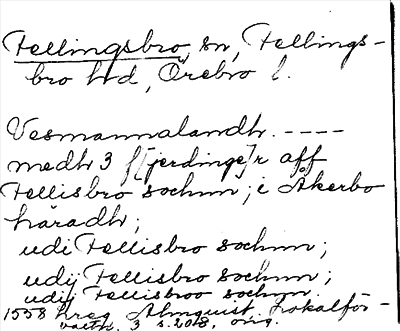 Fellingsbro, sn, Fellings-
bro hrd, Örebro l.
Vesmannalandh. ----
medh 3 f[jerdinge]r aff
Fellisbro sochnn; i Åkerbo
häradh;
udi Fellisbro sochnn;
udij Fellisbro sochnn;
udij Fellisbroo sochnn.
1558 hreg Almquist Lokalför-
valtn. 3 s. 208, orig.